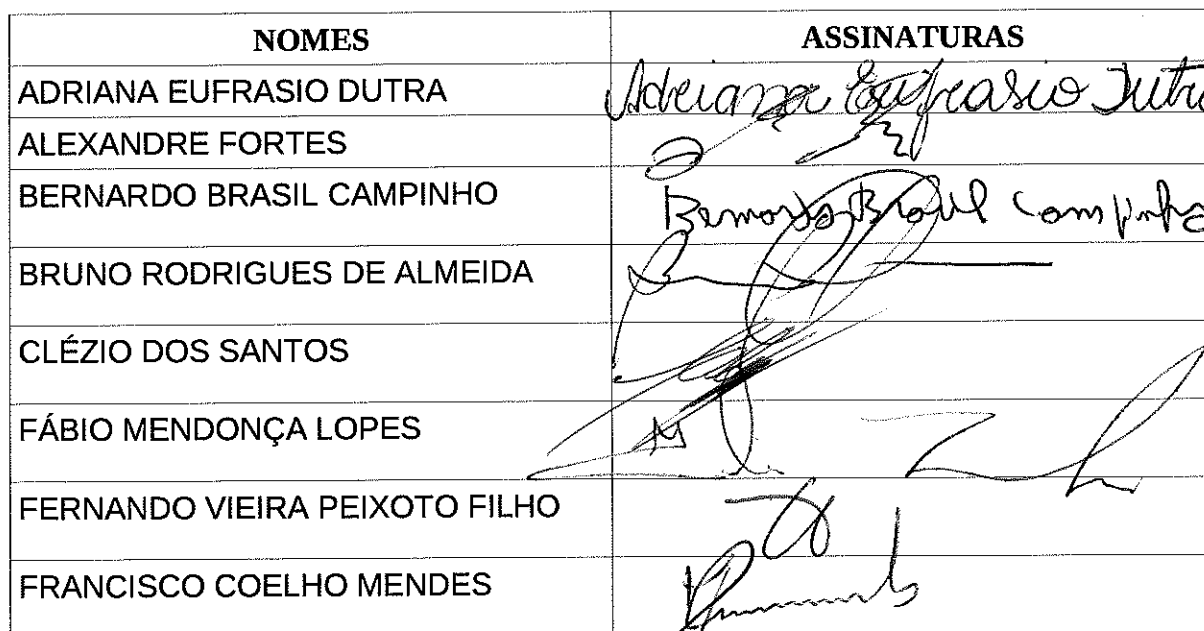 NOMES ASSINATURAS
ADRIANA EUFRASIO DUTRA Adriana Eufrasio Dutra
ALEXANDRE FORTES
BERNARDO BRASIL CAMPINHO Bernardo Brasil Campinho
BRUNO RODRIGUES DE ALMEIDA
CLÉZIO DOS SANTOS
FÁBIO MENDONÇA LOPES
FERNANDO VIEIRA PEIXOTO FILHO
FRANCISCO COELHO MENDES